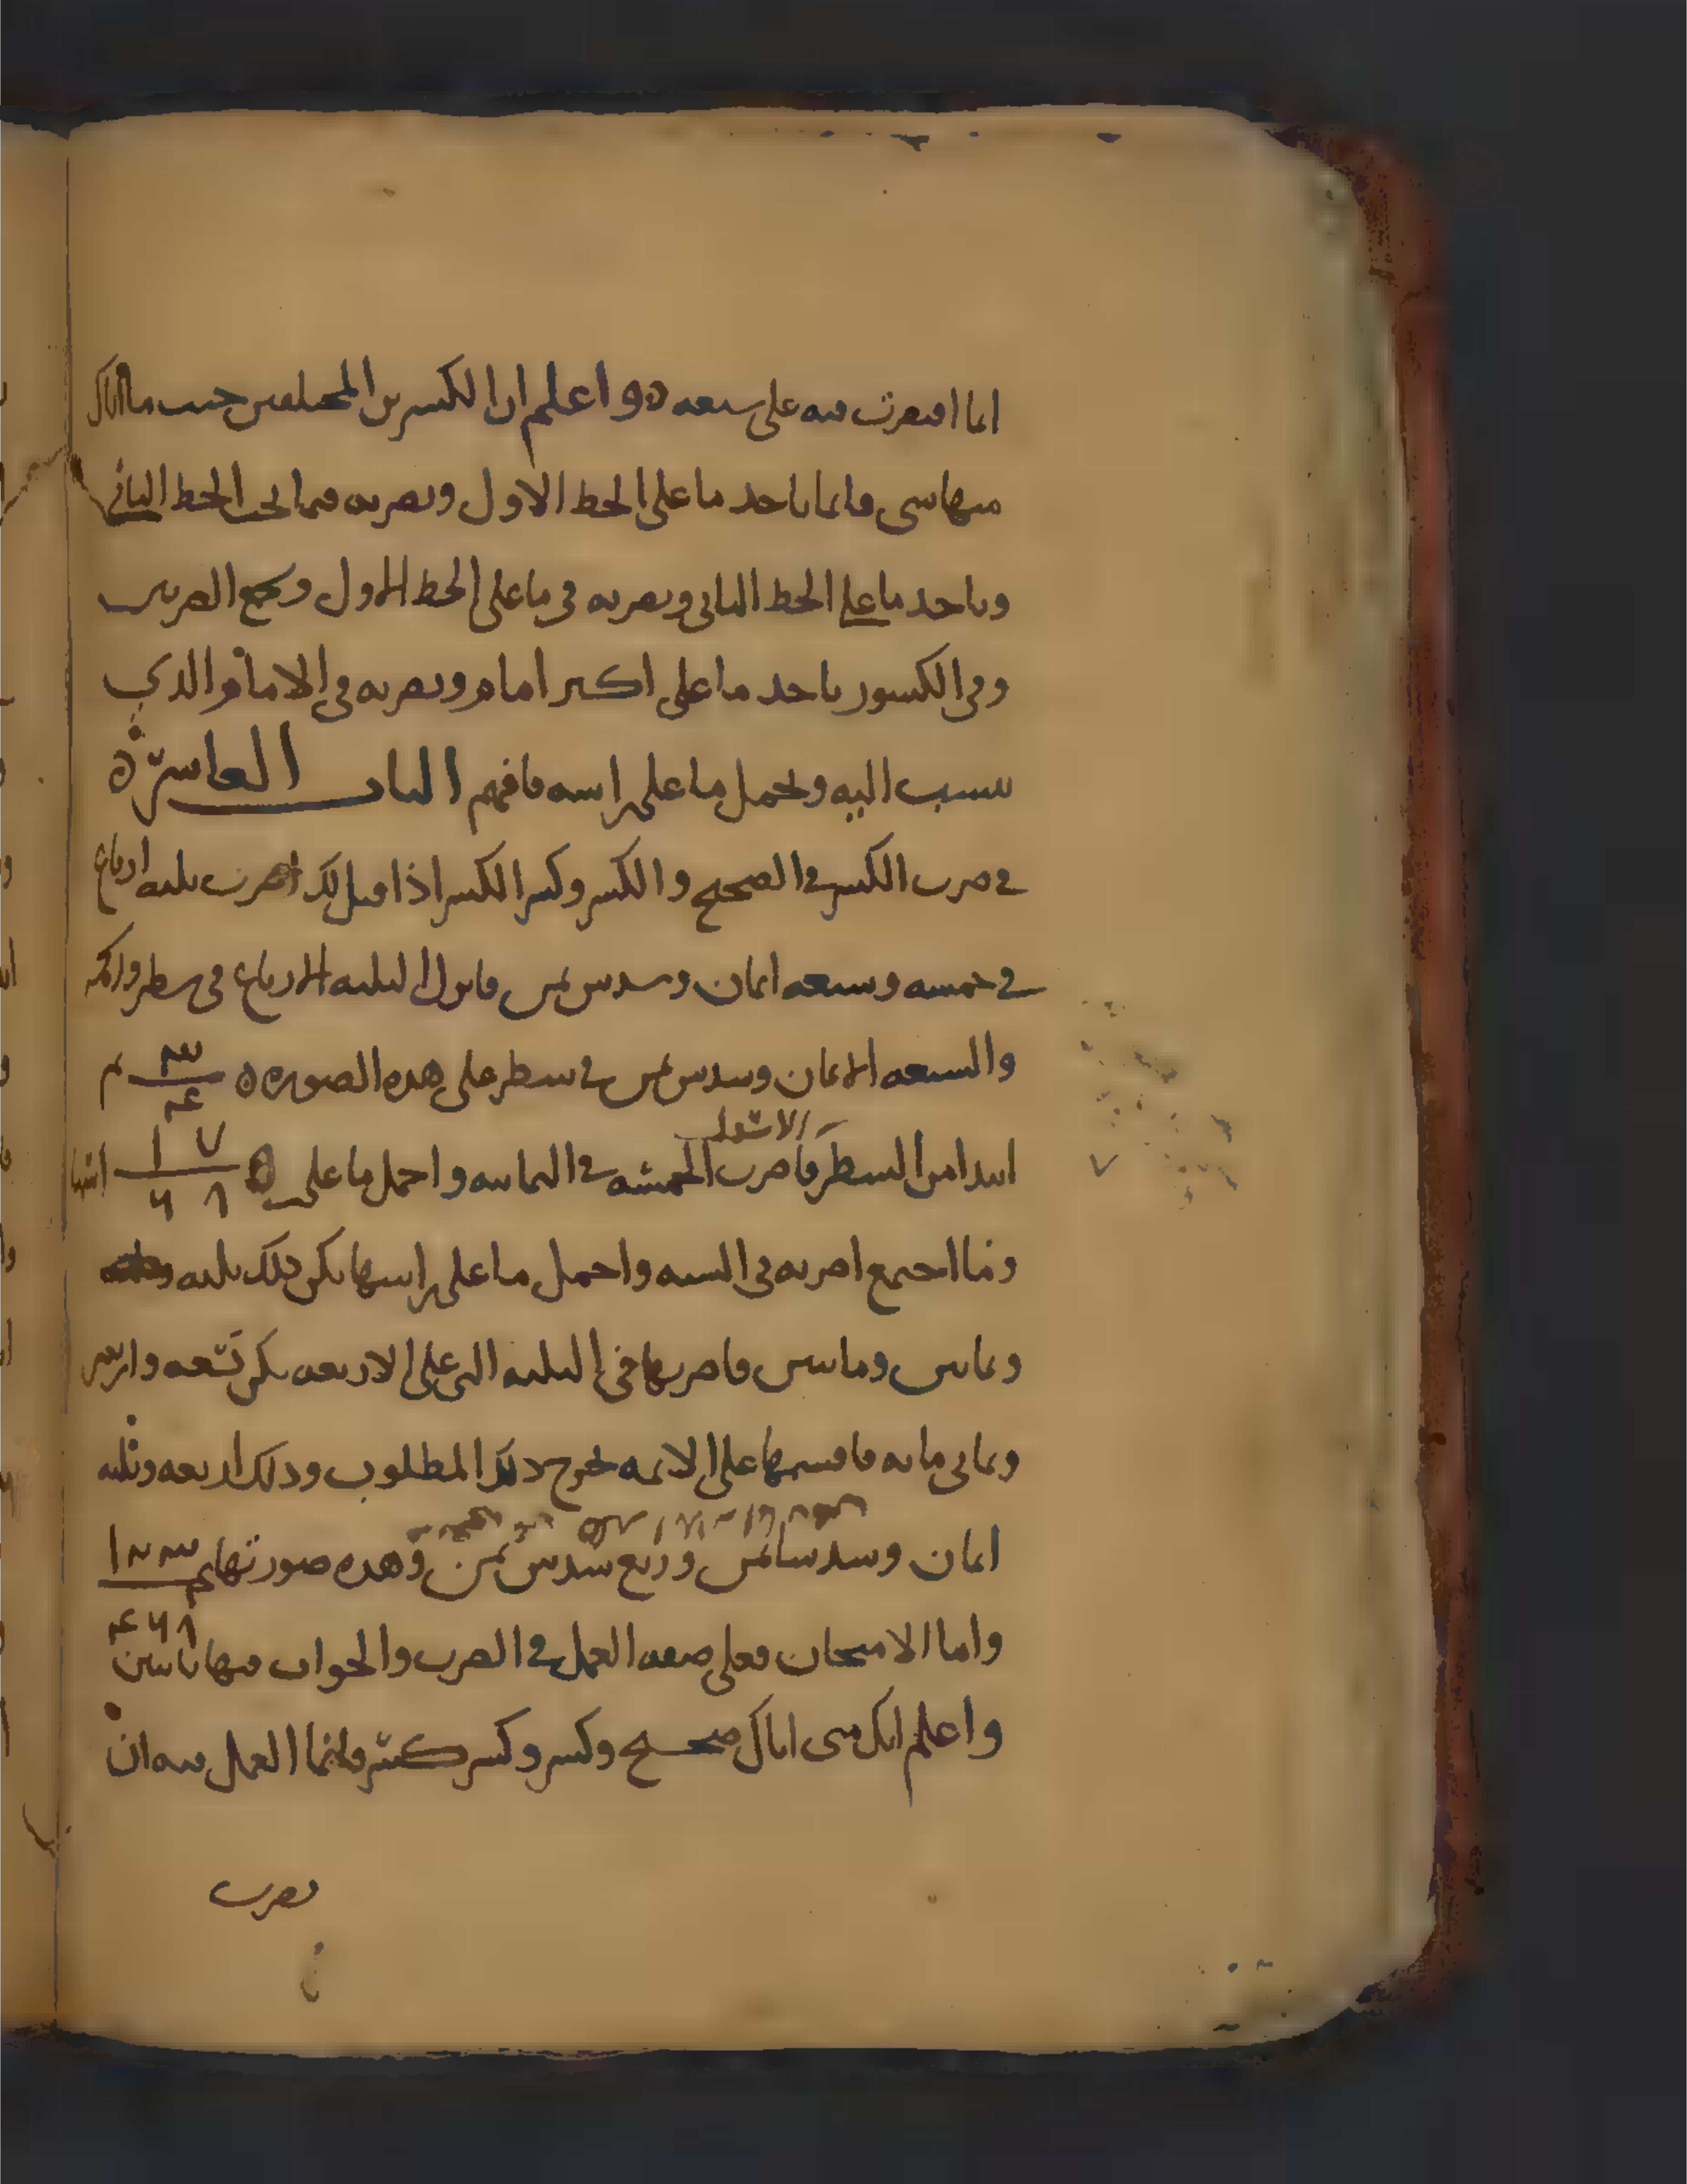 انما افتقرت منه على سبعه ٥ واعلم ان الكسرين المختلفين حيث ما اتاك
منهما شي فانما تاخذ ما على الخط الاول وتضربه فيما تحت الخط الثاني
وتاخذ ما على الخط الثاني وتضربه في ما على الخط الاول وتجمع الضربين
وفي الكسور تاخذ ما على اكبر امام وتضربه في الامام الذي
ينسب اليه وتحمل ما على راسه فافهم الباب العاشر ٥
في ضرب الكسر في الصحيح والكسر وكسر الكسر اذا قيل لك اضرب ثلثه ارباع
في خمسه وسبعه اثمان وسدس ثمن فانزل الثلثه الارباع في سطر والخمسه
والسبعه الاثمان وسدس ثمن في سطر على هذه الصوره ٥ ٣ ٤ ثم
ابدا من السطر الاسفل فاضرب الخمسه في الثمانيه واحمل ما على ٥ ٧ ١ ٨ ٦ راسها
وما اجتمع اضربه في السته واحمل ما على راسها يكن ذلك ثلثه
وثمانين ومايتين فاضربها في الثلثه التي على الاربعه يكن تسعه واربعين
وثماني مايه فاقسمها على الائمه يخرج لك المطلوب وذلك اربعه وثلثه
اثمان وسدسا ثمن وربع سدس ثمن وهذه صورتها ٤ ٣ ٢ ١
٨ ٦ ٤
واما الامتحان فعلى صفه العمل في الضرب والجواب فيها باثنين
واعلم انك متى اتاك صحيح وكسر وكسر كسر فانما العمل فيه ان
تضرب